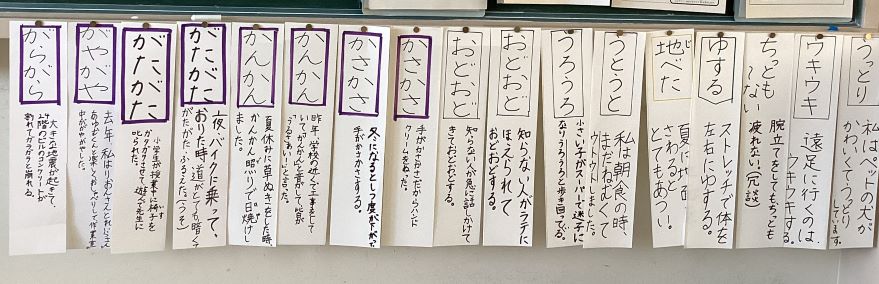 うっとり
私はペットの犬が
かわいくてうっとり
しています。
ウキウキ
遠足に行くのは、
ウキウキする。
ちっとも
〜ない
腹立てをしてもちっとも
疲れない(冗談
ゆする
ストレッチで体を
左右にゆする。
地べた
夏に地べ
さわると
とてもあつい。
うとうと
私は朝食の時、
まだねむくて
ウトウトしました。
うろうろ
小さい子がスーパーで迷子に
なりうろうろと歩き回ってる。
おどおど
知らない人がラテに
ほえられて
おどおどする。
おどおど
知らない人が急に話しかけて
きておどおどする。
かさかさ
手がかさかさだからハンド
クリームをぬった。
かさかさ
冬になるとしつ度が下がって
手がかさかさする。
かんかん
昨年、学校の近くで工事をして
いて、かんかんと音がして、皆が
「うるさあい」と言った。
かんかん
夏休みに草ぬきをした時、
かんかん照りで日焼けし
ました。
がたがた
夜、バイクに乗って。
おりた時、道がとても暗くて
がたがたふるえた。(ウソ)
がたがた
小学生が授業中に椅子を
ガタガタさせて遊んで先生に
叱られた。
がやがや
去年、私はりおんさんと
中ががやがやした。
がらがら
大きな地震が起きて、
階のビルのコンクリートが
割れてガラガラと崩れる。